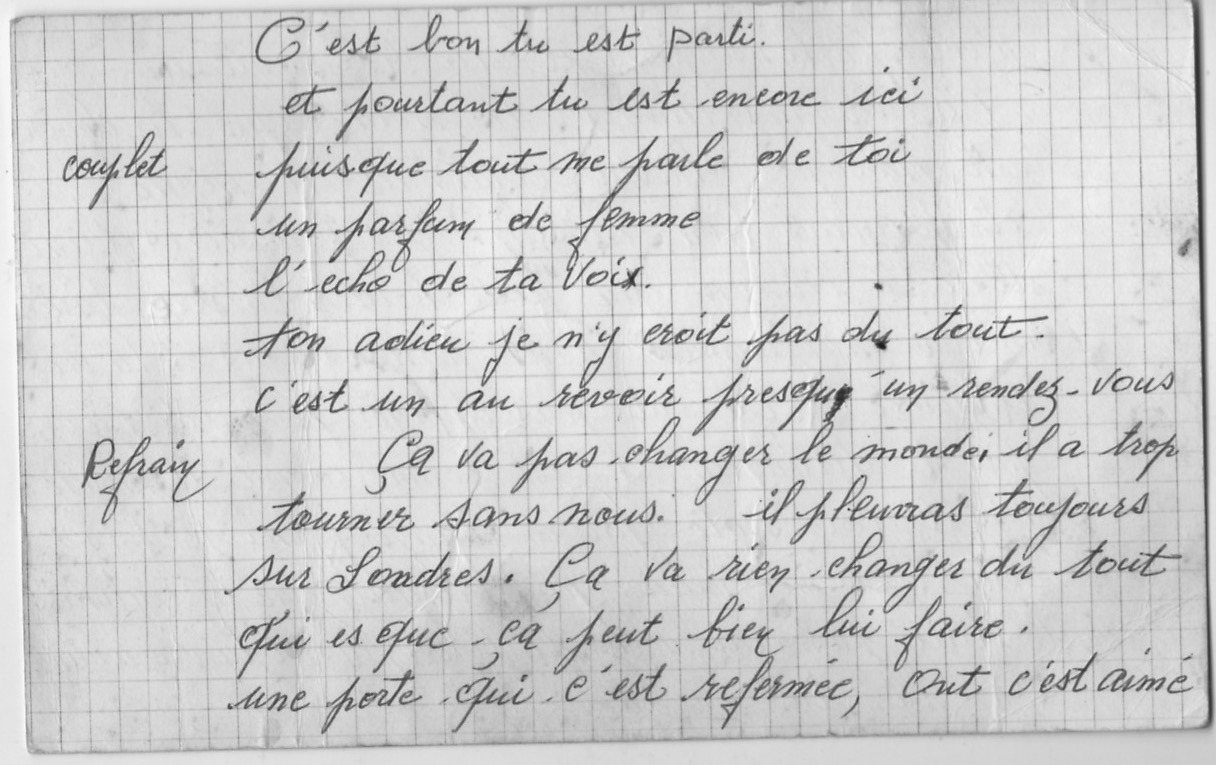 C'est bon tu est parti.
et pourtant tu est encore ici
couplet puisque tout me parle de toi
un parfum de femme
l'echo de ta voix.
ton adieu je n'y croit pas du tout.
c'est un au revoir presqu'un rendez-vous
Refrain Ça va pas changer le monde, il a trop
tourner sans nous. il pleuvras toujours
sur Londres. Ça va rien changer du tout
Qui es que ça peut bien lui faire.
une porte qui c'est refermée, Ont c'est aimé